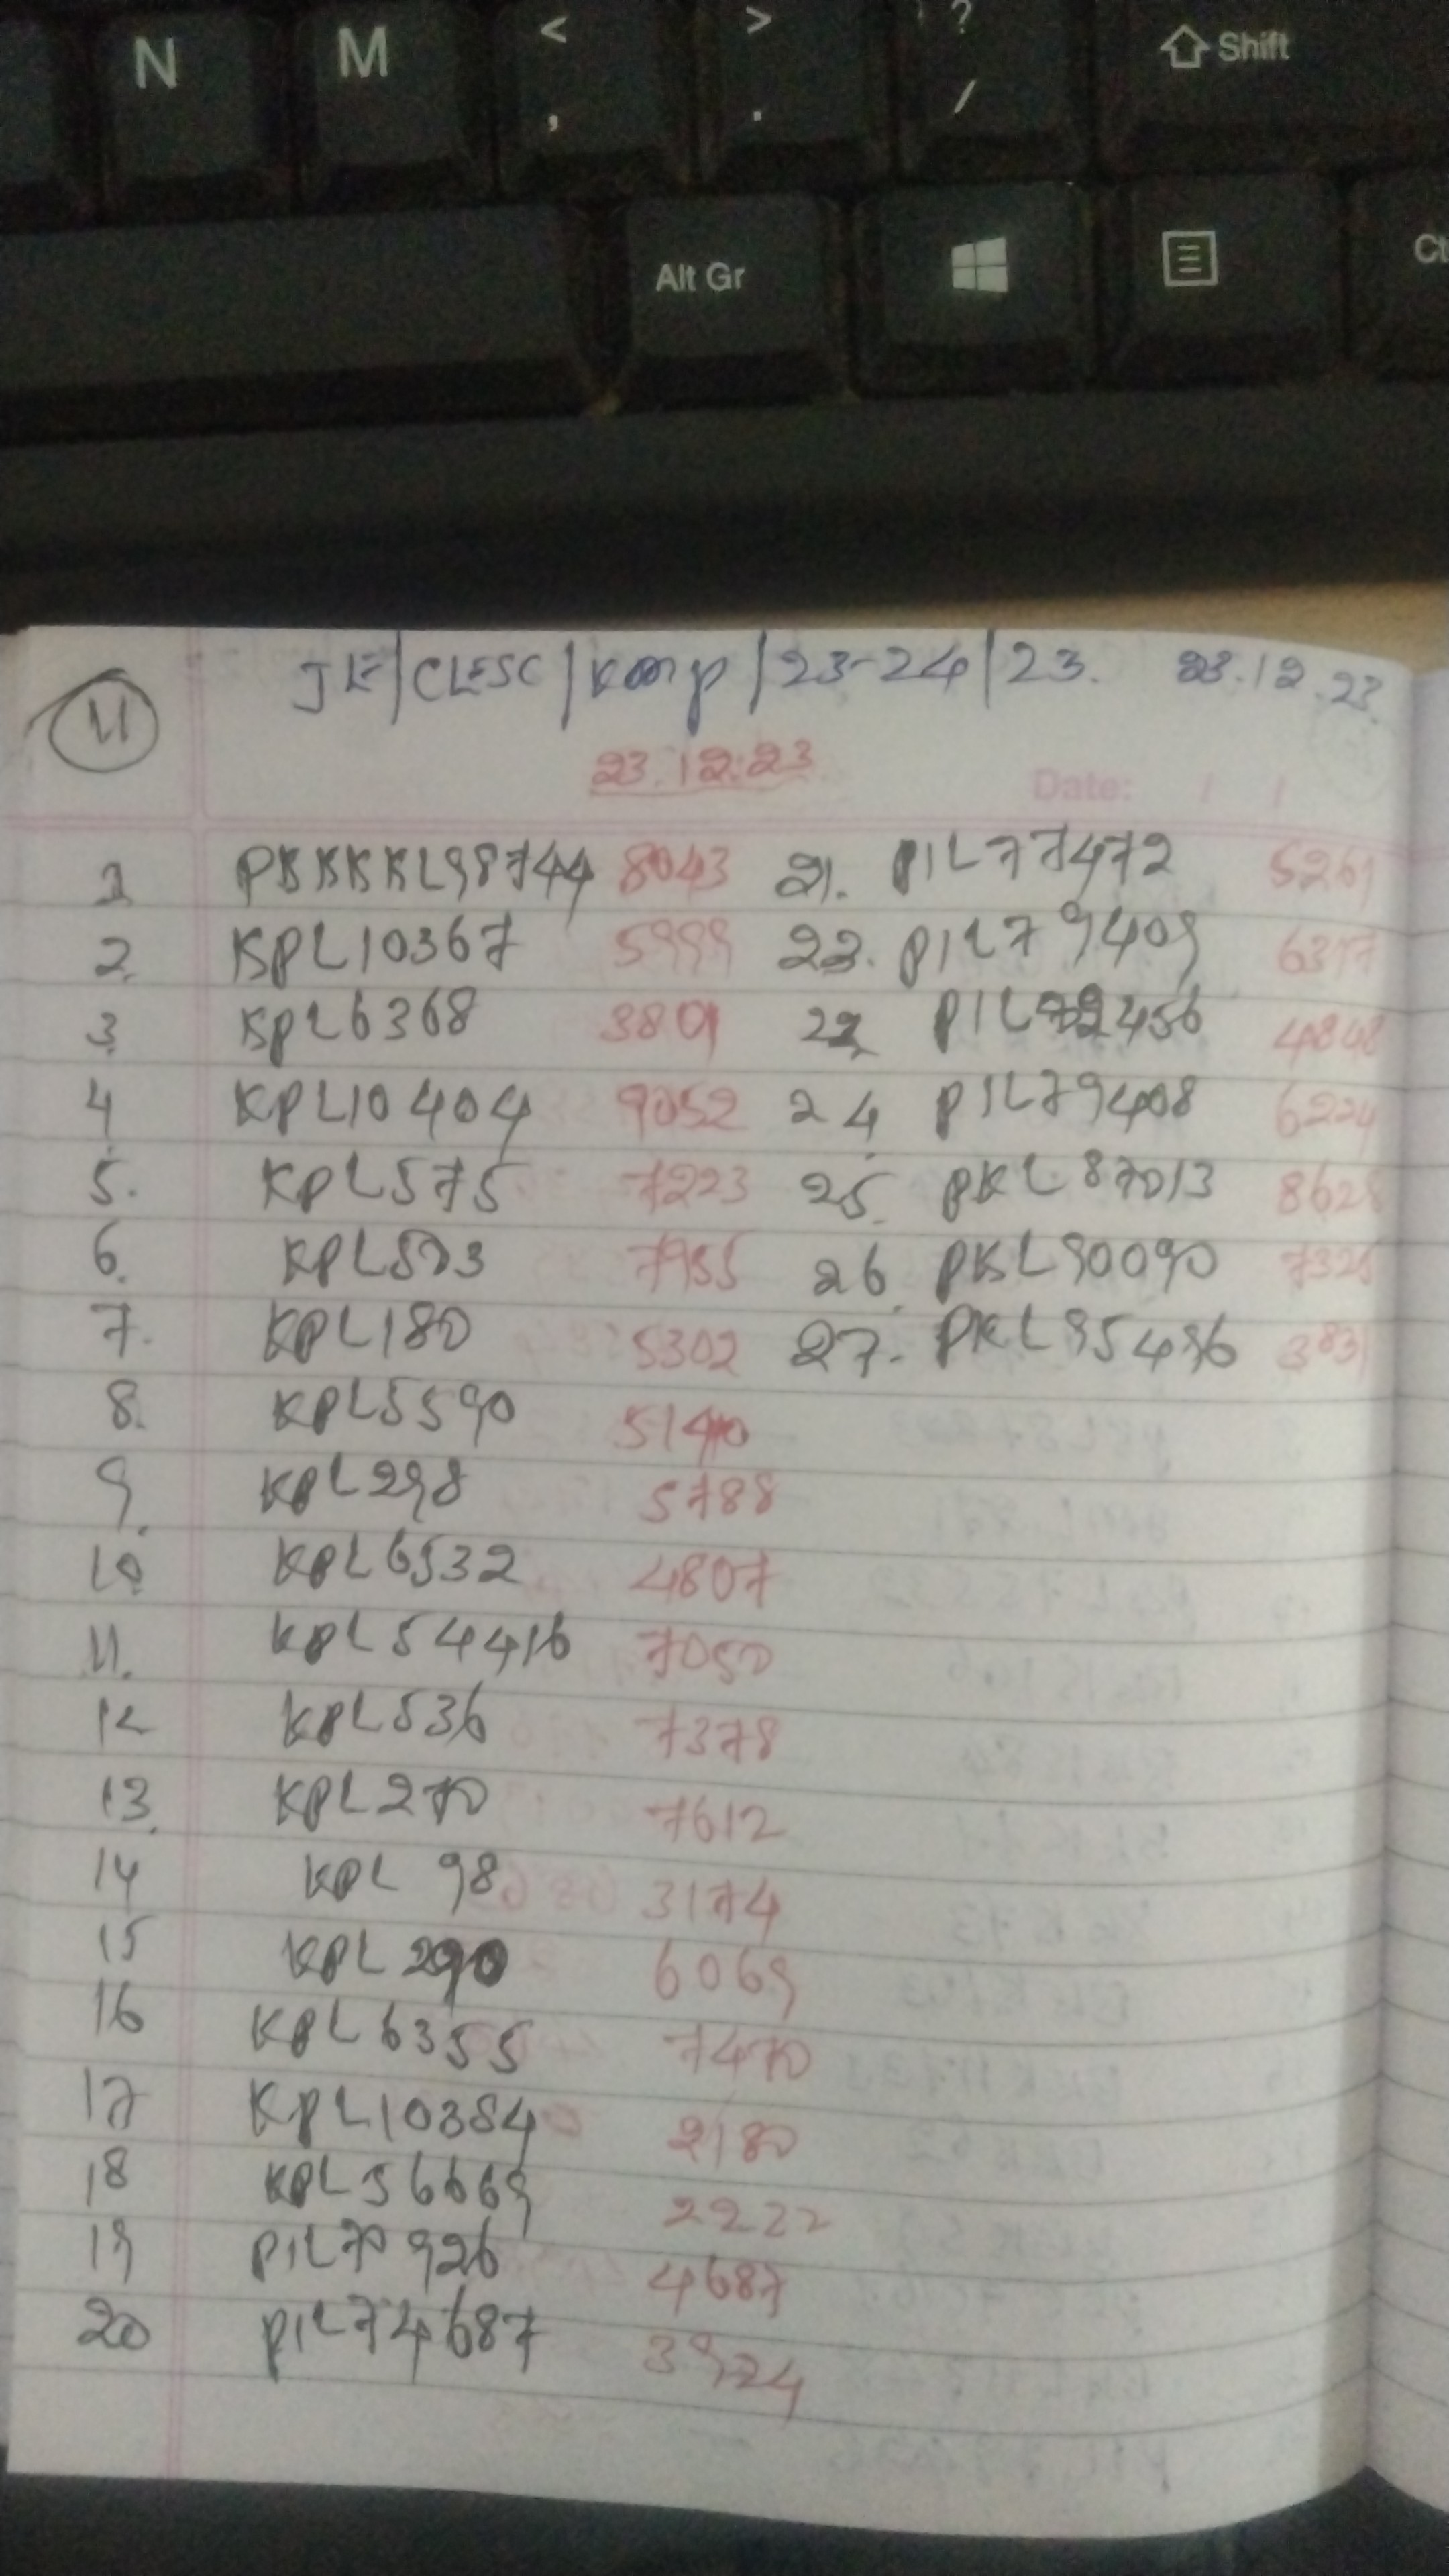 N M < , > . ? / Shift
Alt Gr Ct
11 JE/CLESC/Komp/23-24/23. 23.12.23
23.12.23
Date: / /
1 PKKKKL98744 8043 21. PIL77472 5261
2. KPL10367 5999 22. PIL79409 6317
3. KPL6368 3801 23 PIL72456 4848
4. KPL10404 9052 24. PIL79408 6224
5. KPL575 7223 25. PKL87013 8628
6. KPL503 7955 26. PKL90090 7321
7. KPL180 5302 27. PKL95496 3831
8. KPL5590 5140
9. KPL298 5788
10. KPL6532 4807
11. KPL54416 7050
12 KPL536 7378
13. KPL270 7612
14 KPL 98 3174
15 KPL 290 6069
16 KPL6355 7470
17 KPL10384 2180
18 KPL56669 2222
19 PIL70926 4687
20 PIL74687 3924